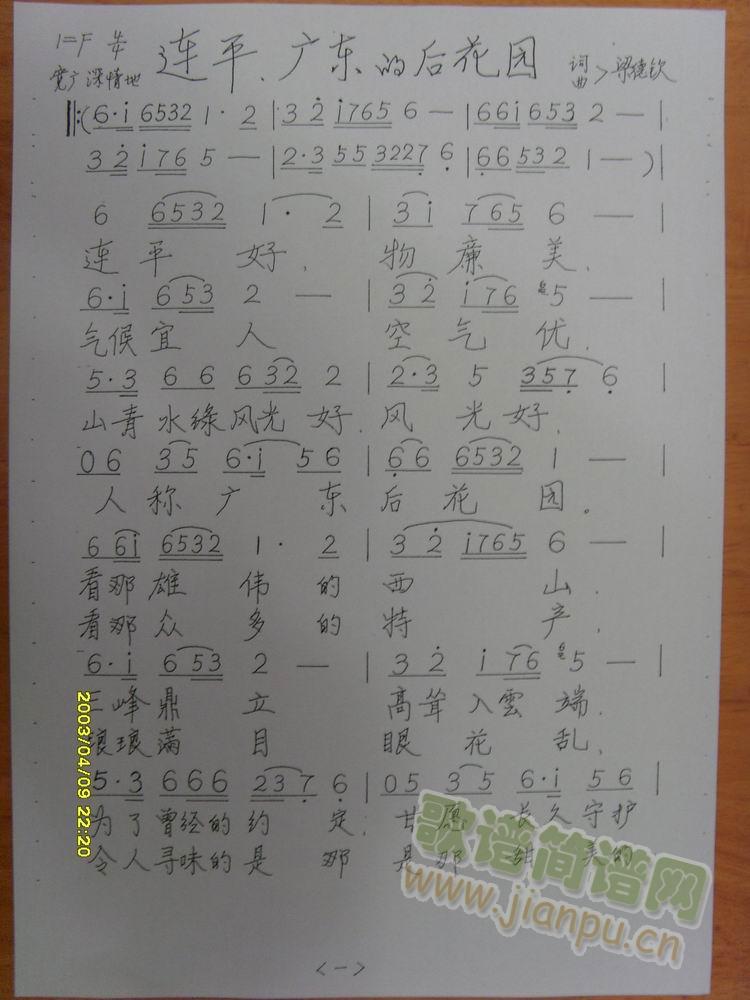 1=F 4/4 连平、广东的后花园 词曲>梁德钦
宽广深情地
‖:(6·i 6532 1·2 | 3 2 i765 6 — | 66i 653 2 — |
3 2 i76 5 — | 2·3 55 3227 6 | 66532 1 — )
6 6532 1· 2 | 3i 765 6 — |
连平好,物廉美,
6·i 653 2 — | 3 2 i76 5 — |
气候宜人 空气优,
5·3 6 6 632 2 | 2·3 5 357 6 |
山青水绿风光好,风光好,
06 35 6·i 56 | 66 6532 1 — |
人称广东后花园。
6 6i 6532 1· 2 | 3 2 i765 6 — |
看那雄伟的西山,
看那众多的特产,
6·i 653 2 — | 3 2 i76 5 — |
三峰鼎立 高耸入雲端,
琅琅满目 眼花乱,
5·3 666 237 6 | 05 35 6·i 56 |
为了曾经的约定,甘愿长久守护
令人寻味的是那 是那甜美的
<一>
2003/04/09 22:20
歌谱简谱网
www.jianpu.cn